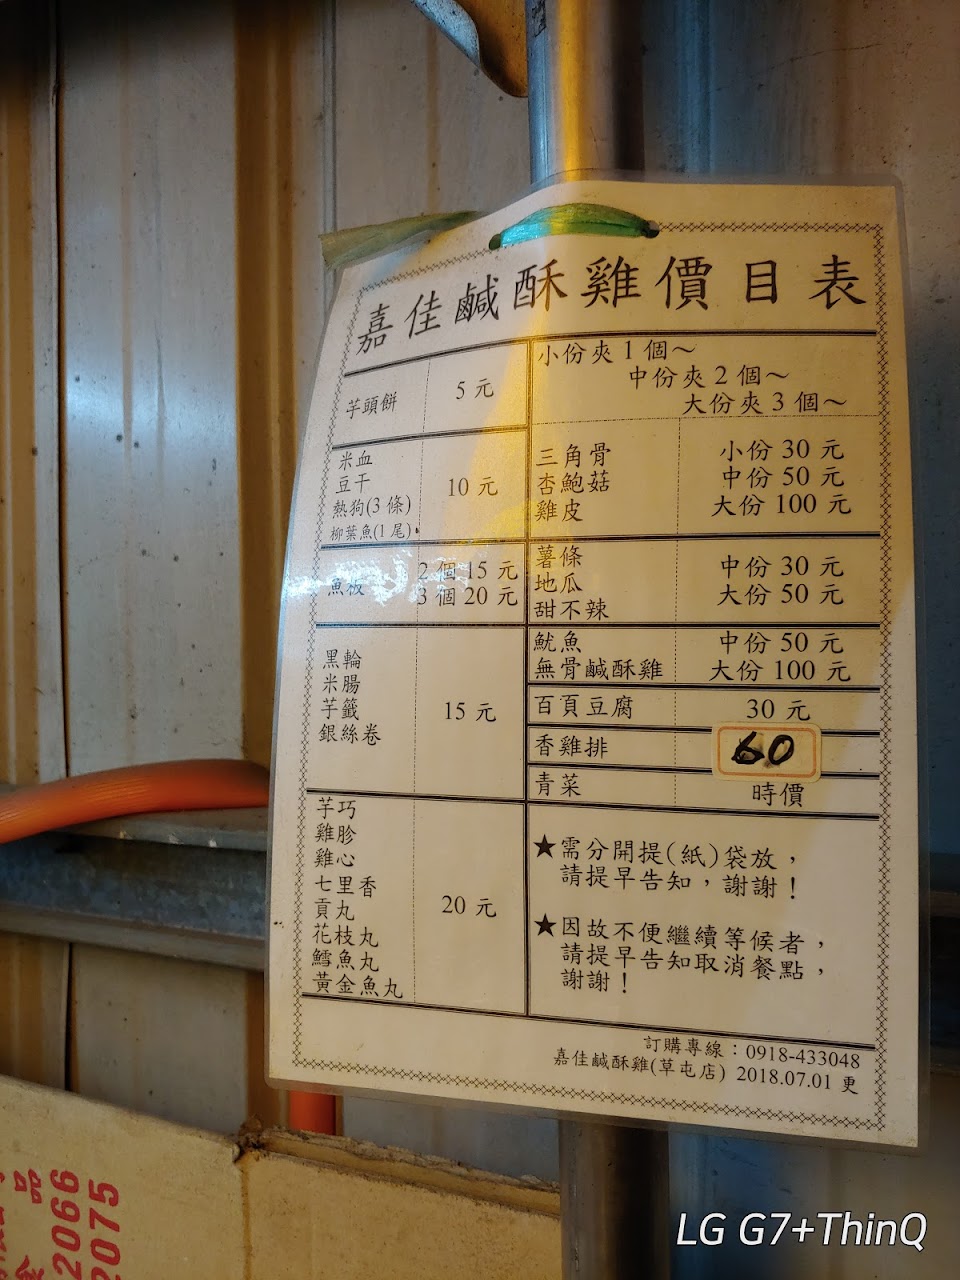 嘉佳鹹酥雞價目表
芋頭餅 5 元
米血
豆干
熱狗(3 條)
柳葉魚(1 尾)
10 元
魚板
2 個 15 元
3 個 20 元
黑輪
米腸
芋籤
銀絲卷
15 元
芋巧
雞胗
雞心
七里香
貢丸
花枝丸
鱈魚丸
黃金魚丸
20 元
小份夾 1 個～
中份夾 2 個～
大份夾 3 個～
三角骨
杏鮑菇
雞皮
小份 30 元
中份 50 元
大份 100 元
薯條
地瓜
甜不辣
中份 30 元
大份 50 元
魷魚
無骨鹹酥雞
中份 50 元
大份 100 元
百頁豆腐 30 元
香雞排 60
青菜 時價
★需分開提(紙)袋放，
請提早告知，謝謝！
★因故不便繼續等候者，
請提早告知取消餐點，
謝謝！
訂購專線：0918-433048
嘉佳鹹酥雞(草屯店) 2018.07.01 更
2066
2075
LG G7+ThinQ